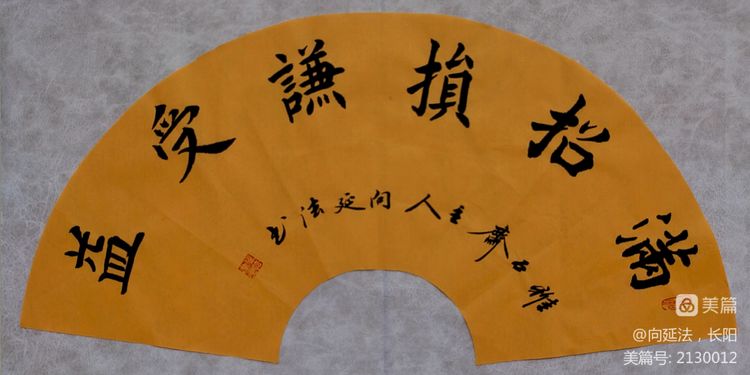 滿招損謙受益
雅石齋主人向延法书
美篇
@向延法，长阳
美篇号: 2130012